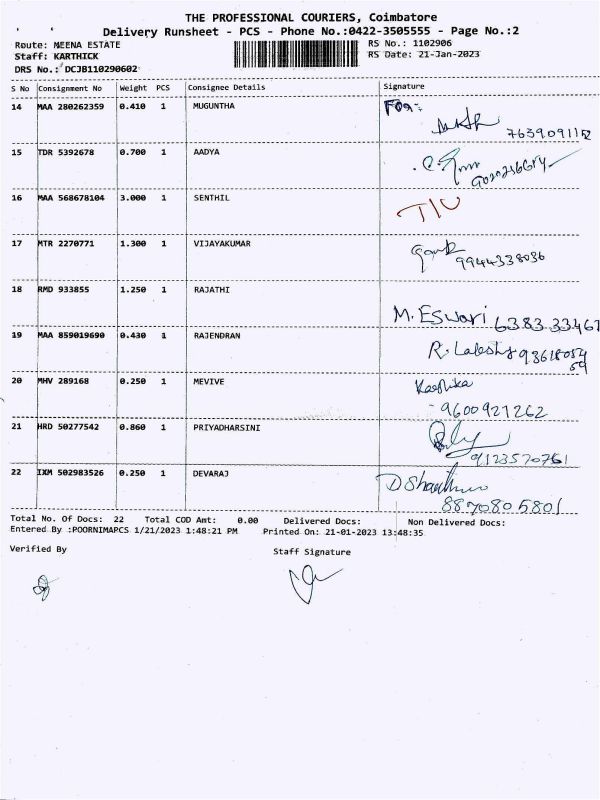 THE PROFESSIONAL COURIERS, Coimbatore
Delivery Runsheet - PCS - Phone No.:0422-3505555 - Page No.:2
Route: MEENA ESTATE
RS No.: 1102906
Staff: KARTHICK
RS Date: 21-Jan-2023
DRS No.: DCJB110290602
S No Consignment No Weight PCS Consignee Details Signature
14 MAA 280262359 0.410 1 MUGUNTHA For:
7639091152
15 TDR 5392678 0.700 1 AADYA
16 MAA 568678104 3.000 1 SENTHIL T/U
17 MTR 2270771 1.300 1 VIJAYAKUMAR
9944338036
18 RMD 933855 1.250 1 RAJATHI
M. Eswari 6383 33467
19 MAA 859019690 0.430 1 RAJENDRAN
20 MHV 289168 0.250 1 MEVIVE
9600921262
21 HRD 50277542 0.860 1 PRIYADHARSINI
22 IXM 502983526 0.250 1 DEVARAJ
8870805801
Total No. Of Docs: 22 Total COD Amt: 0.00 Delivered Docs: Non Delivered Docs:
Entered By :POORNIMAPCS 1/21/2023 1:48:21 PM Printed On: 21-01-2023 13:48:35
Verified By
Staff Signature